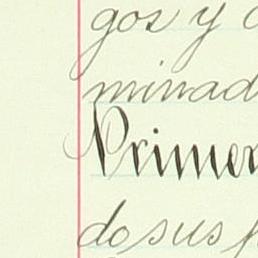 gos y
minad
Primer
do sus